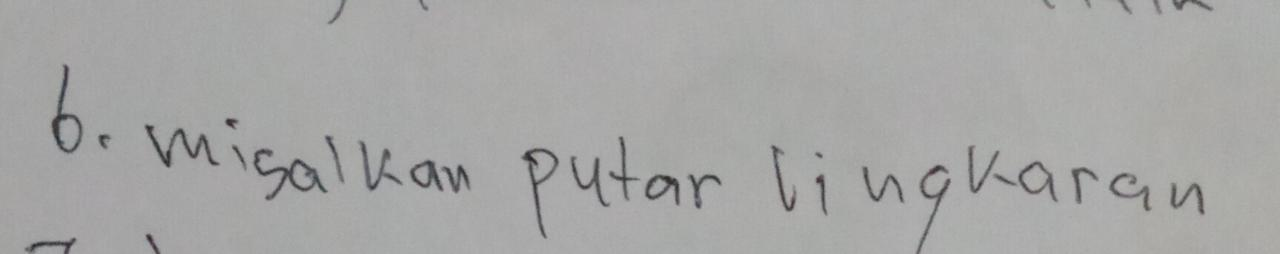 6. misalkan putar lingkaran